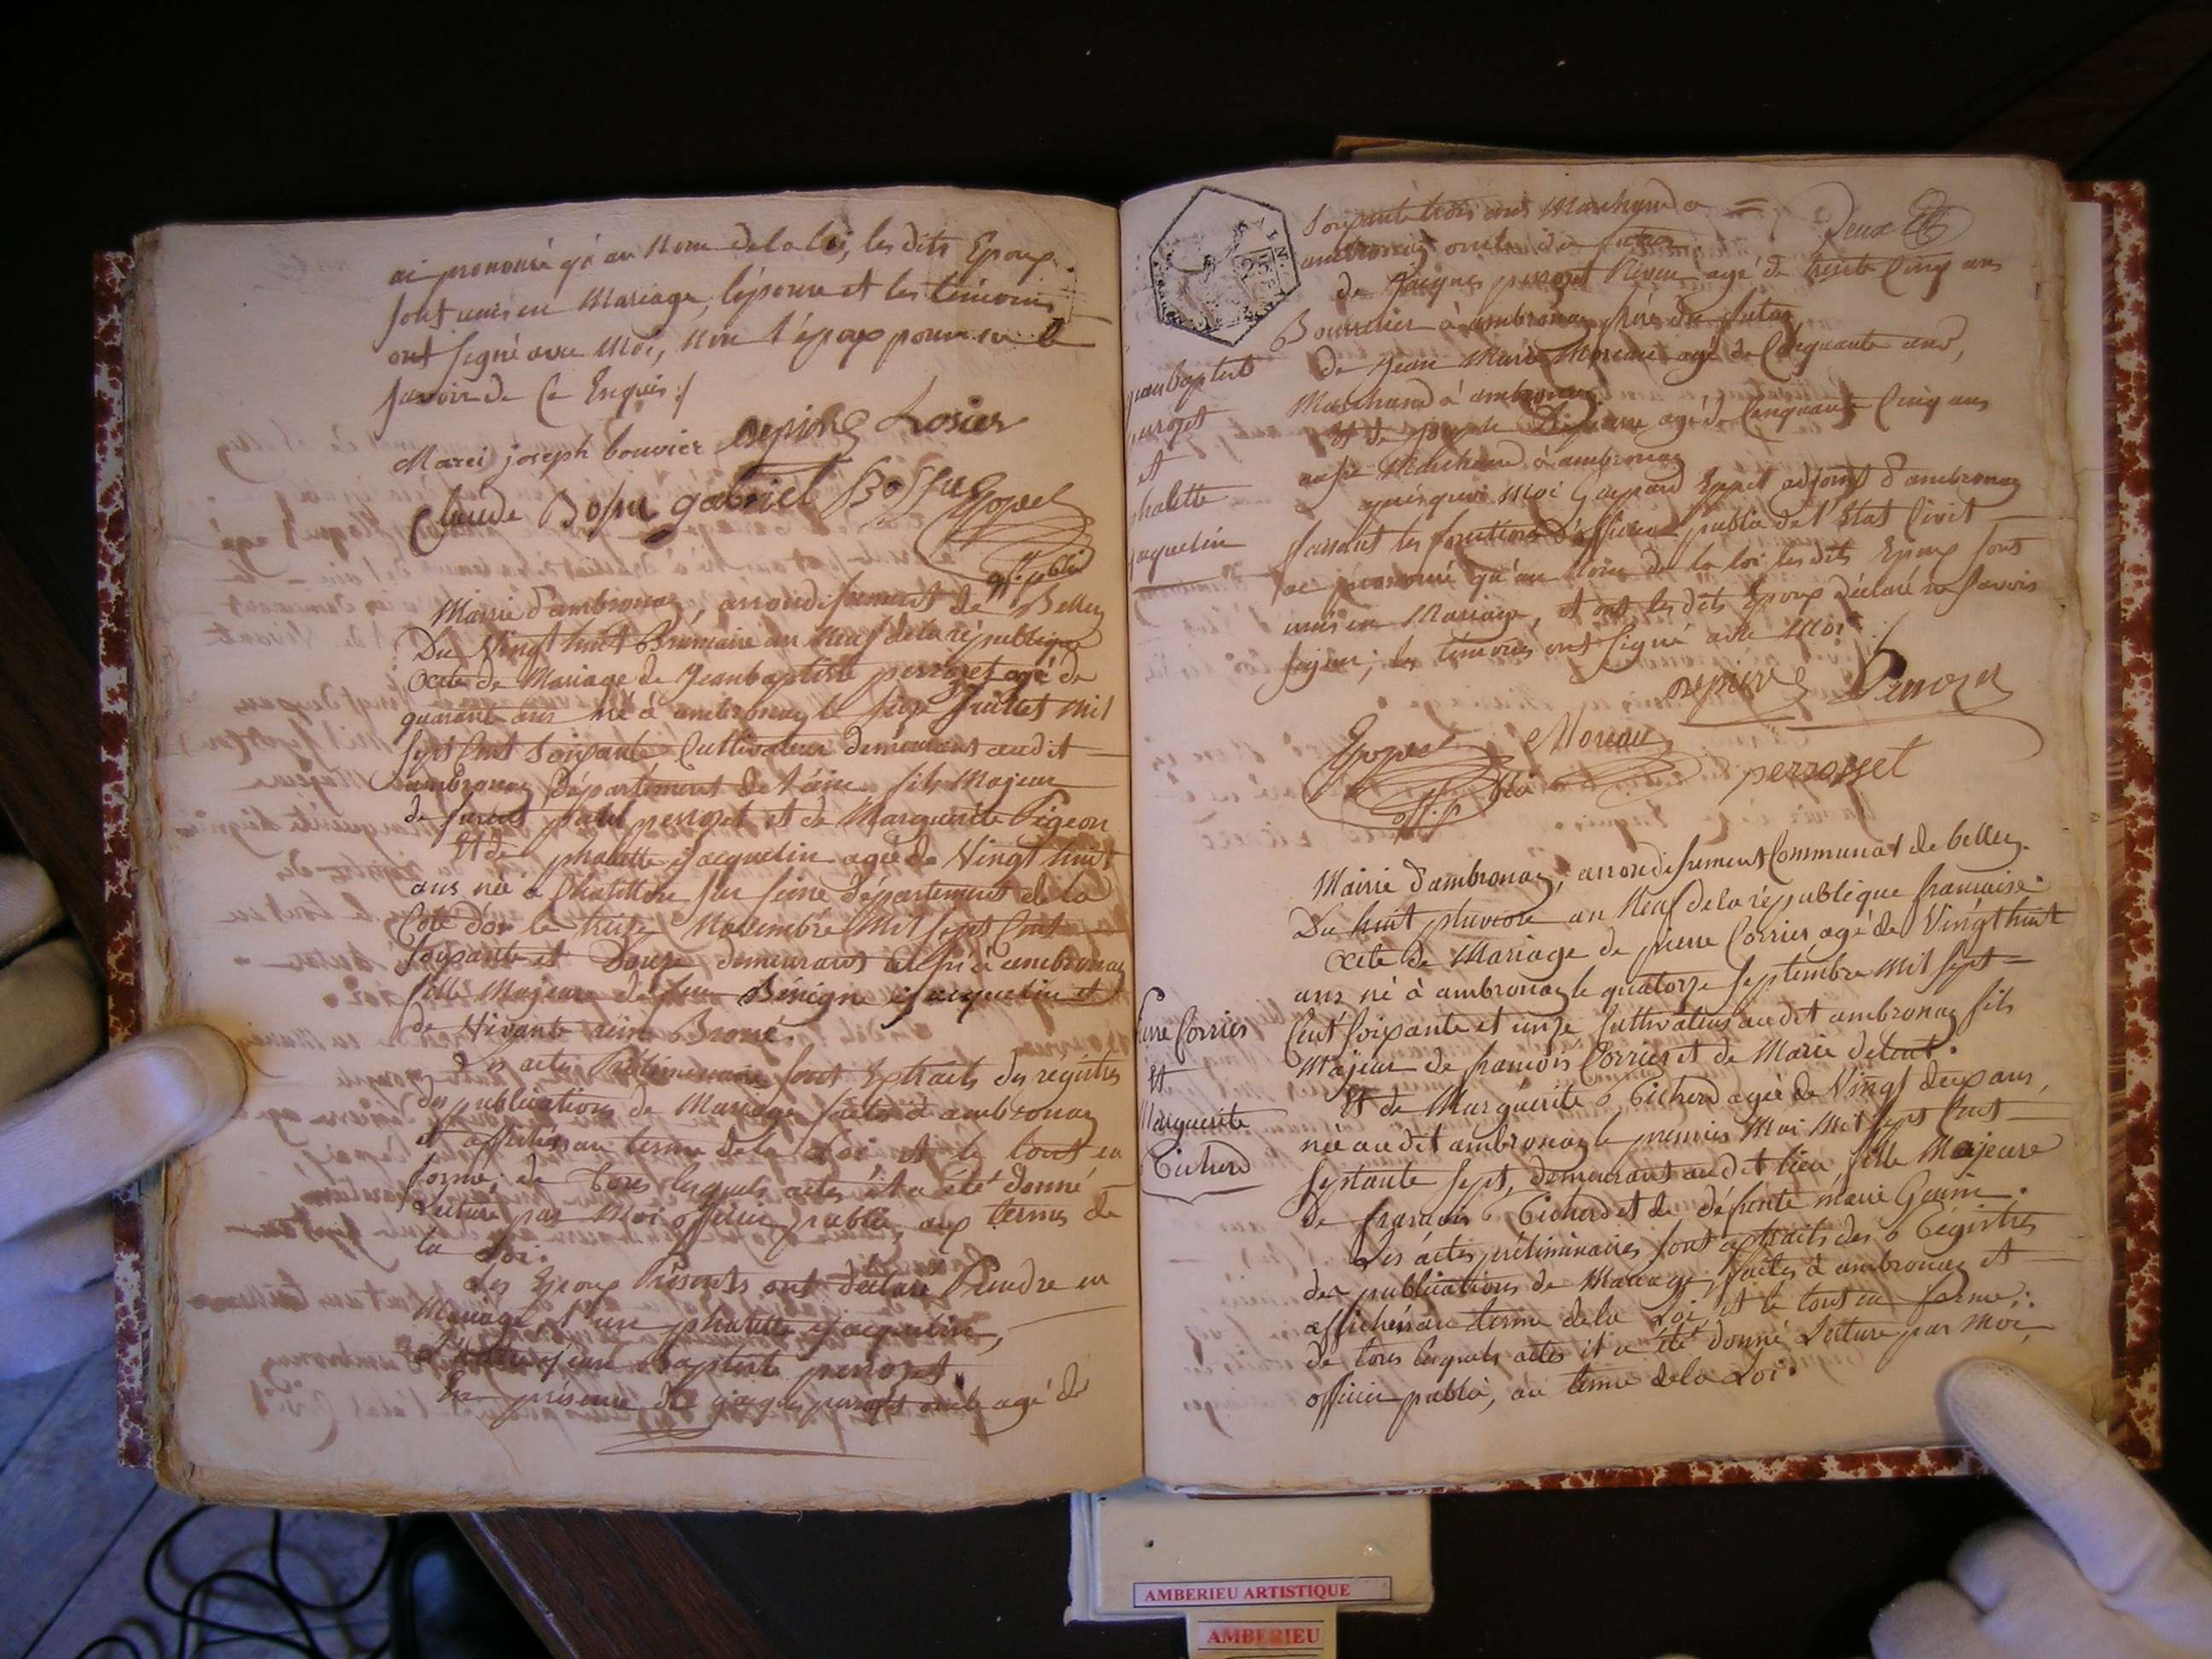 ai prononcé qu'au Nom de la loi, les dits Epoux
sont unis en Mariage, l'épouse et les témoins
ont signé avec Moi, Non l'époux pour ne le
savoir de ce Enquis :/
Marei joseph bouvier depierre Losier
Claude Bossu gabriel Bossue
off. public
Mairie d'ambronay, arrondissement de Belley
Du Vingt huit Brumaire an Neuf de la république
Acte de Mariage de Jeanbaptiste perrozet agé de
quarant ans né à ambronay le seize Juillet Mil
sept Cent soixante Cultivateur demeurant audit
ambronay Département de l'ain fils Majeur
de perrozet et de Marguerite Pigeon
Et de phalette jacquelin agée de Vingt huit
ans née à Chatillon sur seine Département de la
Cote d'or le treize Novembre Mil sept Cent
soixante et Douze demeurant aussi à ambronay
fille Majeure de feu Bénigne jacquelin et
de Vivante Bromé.
Les actes Préliminaires sont Extraits des registres
des publications de Mariage faites à ambronay
et affichés au terme de la Loi et le tout en
forme; de Tous lesquels actes il a été donné
Lecture par Moi officier public, aux termes de
la Loi.
Les Epoux Présents ont déclaré Prendre en
Mariage, l'un phalette jacquelin,
L'autre jean Baptiste perrozet.
En présence de jaques perrozet oncle agé de
Soixante trois ans Marchand a =
ambronay oncle du futur
Deux
de Jacques perrozet Neveu agé de trente Cinq ans
Bourrelier à ambronay frère du futur
de Jean Marie Moreau agé de Cinquante ans,
Marchand à ambronay
Et de joseph Depierre agé de Cinquante Cinq ans
aussi Marchand à ambronay
après quoi Moi Gaspard adjoint d'ambronay
faisant les fonctions d'officier public de l'Etat Civil
ai prononcé qu'au Nom de la loi les dits Epoux sont
unis en Mariage, et ont les dits Epoux déclaré ne savoir
signer; les témoins ont signé avec Moi
jeanbaptiste
perrozet
et
phalette
jaquelin
depierre Perrozet
Moreau
perrosset
off. p
Mairie d'ambronay, arrondissement Communal de belley.
Du huit pluviose an Neuf de la république francaise.
Acte de Mariage de pierre Corrier agé de Vingt huit
ans né à ambronay le quatorze septembre Mil sept =
Cent soixante et onze Cultivateur audit ambronay fils
Majeur de francois Corrier et de Marie detent.
Et de Marguerite Ticherd agée de Vingt deux ans,
née audit ambronay le premier Mai Mil sept Cent
septante sept, demeurant audit lieu fille Majeure
de francois Ticherd et de défunte marie Genin.
Les actes préliminaires sont extraits des Régistres
des publications de Mariage, faites à ambronay et
affichés au terme de la Loi, et le tout en forme:
de tous lesquels actes il a été donné Lecture par Moi,
officier public, au terme de la Loi.
pierre Corrier
Et
Marguerite
Ticherd
AMBERIEU ARTISTIQUE
AMBERIEU